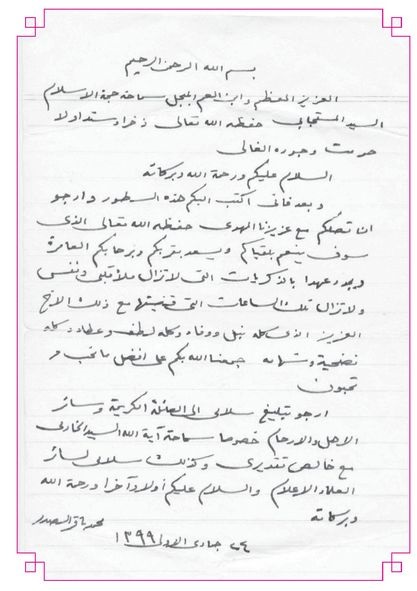 بسم الله الرحمن الرحيم
العزيز المعظم وابن العم المبجل سماحة حجة الاسلام
السيد المستجابي حفظه الله تعالى ذخرا وسندا ولا
حرمت وجوده الغالي
السلام عليكم ورحمة الله وبركاته
وبعد فاني اكتب اليكم هذه السطور وارجو
ان تصلكم مع عزيزنا المهدي حفظه الله تعالى الذي
سوف ينعم بلقياكم ويسعد بقربكم وبرحابكم العامرة
ويجدد عهدا بالذكريات التي لا تزال ملأ قلبي ونفسي
ولا تزال تلك الساعات التي قضيتها مع ذلك الاخ
العزيز الذي كله نبل ووفاء وكله لطف وعطاء وكله
تضحية وشهامة جمعنا الله بكم على افضل ما نحب و
تحبون
ارجو تبليغ سلامي الى العائلة الكريمة وسائر
الاهل والارحام خصوصا سماحة آية الله السيد الخادمي
مع خالص تقديري وكذلك سلامي لسائر
العلماء الاعلام والسلام عليكم أولا وآخرا ورحمة الله
وبركاته
محمد باقر الصدر
٢٤ جمادى الاولى ١٣٩٩